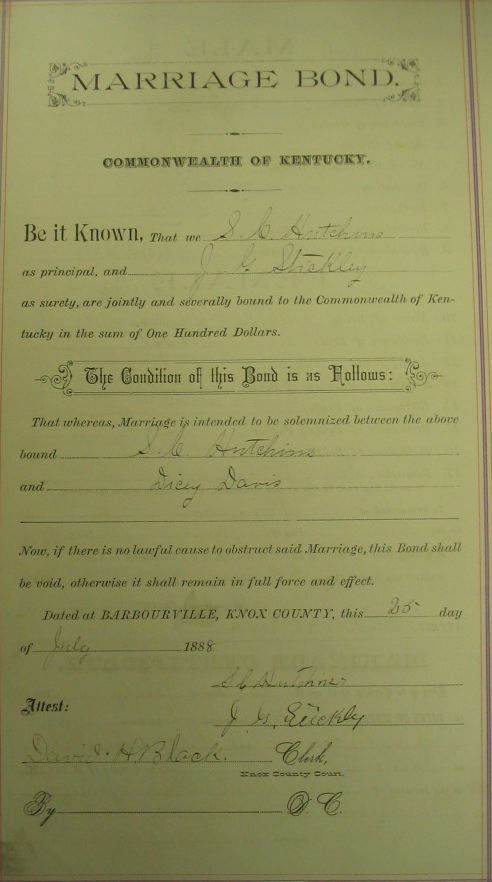 MARRIAGE BOND.
COMMONWEALTH OF KENTUCKY.
Be it Known, That we S. C. Hutchins
as principal, and J. G. Stickley
as surety, are jointly and severally bound to the Commonwealth of Ken-
tucky in the sum of One Hundred Dollars.
The Condition of this Bond is as Follows:
That whereas, Marriage is intended to be solemnized between the above
bound S. C. Hutchins
and Dicey Davis
Now, if there is no lawful cause to obstruct said Marriage, this Bond shall
be void, otherwise it shall remain in full force and effect.
Dated at BARBOURVILLE, KNOX COUNTY, this 25 day
of July 1888
S C
Attest:
J. G.
David H. Black. Clerk,
Knox County Court.
By D. C.